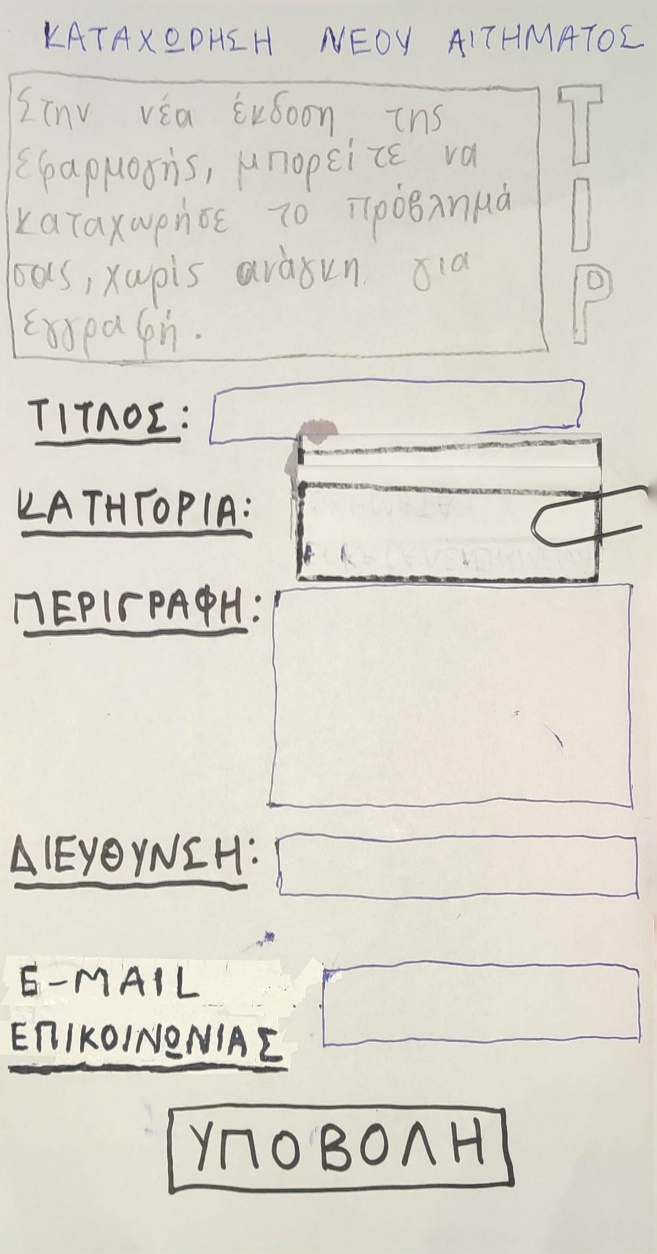 ΚΑΤΑΧΩΡΗΣΗ ΝΕΟΥ ΑΙΤΗΜΑΤΟΣ
Στην νέα έκδοση της
εφαρμογής, μπορείτε να
καταχωρήσε το πρόβλημά
σας, χωρίς ανάγκη για
εγγραφή.
TIP
ΤΙΤΛΟΣ:
ΚΑΤΗΓΟΡΙΑ:
ΠΕΡΙΓΡΑΦΗ:
ΔΙΕΥΘΥΝΣΗ:
E-MAIL
ΕΠΙΚΟΙΝΩΝΙΑΣ
ΥΠΟΒΟΛΗ